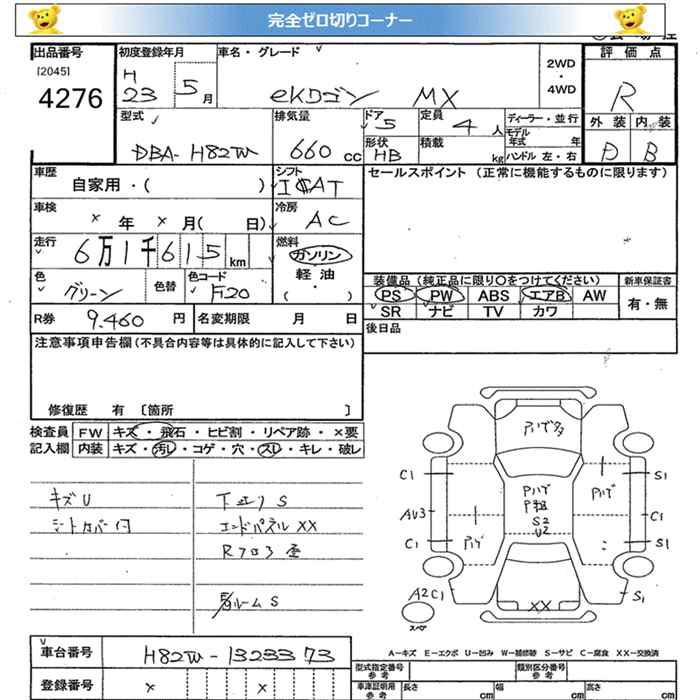 完全ゼロ切りコーナー
出品番号
[2045]
4276
初度登録年月
H
23 5月
車名・グレード
eKワゴン MX
2WD
・
4WD
評価点
R
外装 内装
D B
型式
DBA-H82W
排気量
660cc
ドア
5
定員
4人
ディーラー・並行
モデル
年式 年
形状
HB
積載
kg
ハンドル 左・右
車歴
自家用・( )
シフト
ICAT
セールスポイント(正常に機能するものに限ります)
車検
× 年 × 月( 日)
冷房
AC
走行
6万1千615km
燃料
ガソリン
軽油
( ・ )
色
グリーン
色替
色コード
F20
装備品(純正品に限り○をつけてください)
新車保証書
PS PW ABS エアB AW
有・無
SR ナビ TV カワ
R券
9,460円
名変期限 月 日
後日品
注意事項申告欄(不具合内容等は具体的に記入して下さい)
修復歴 有 [箇所 ]
検査員 FW キズ・飛石・ヒビ割・リペア跡・×要
記入欄 内装 キズ・汚レ・コゲ・穴・スレ・キレ・破レ
キズU
シートカバー付
下廻りS
エンドパネルXX
Rフロア歪
ルームS
アハゲ多
C1
S1
Pハゲ
P粗
S2
U2
Pハゲ
AU3
C1
C1
S1
アハゲ
A2C1
S1
XX
スペア
A-キズ E-エクボ U-凹み W-補修跡 S-サビ C-腐食 XX-交換済
車台番号
H82W-1323373
型式指定番号
参考
類別区分番号
参考
登録番号
× ×
車庫証明用
参考
長さ cm 幅 cm 高さ cm